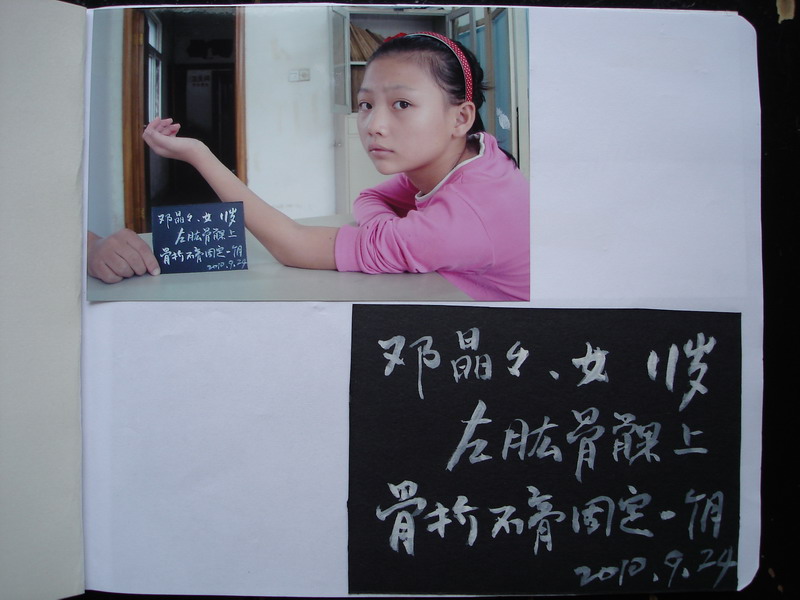 邓晶々、女 11岁
左肱骨髁上
骨折石膏固定一月
2010.9.24
邓晶々、女 11岁
左肱骨髁上
骨折石膏固定一个月
2010.9.24